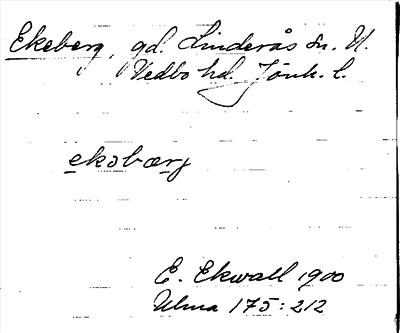 Ekeberg, gd. Linderås sn. N.
Vedbo hd. Jönk. l.
ekobærj
E. Ekwall 1900
Ulma 175:212